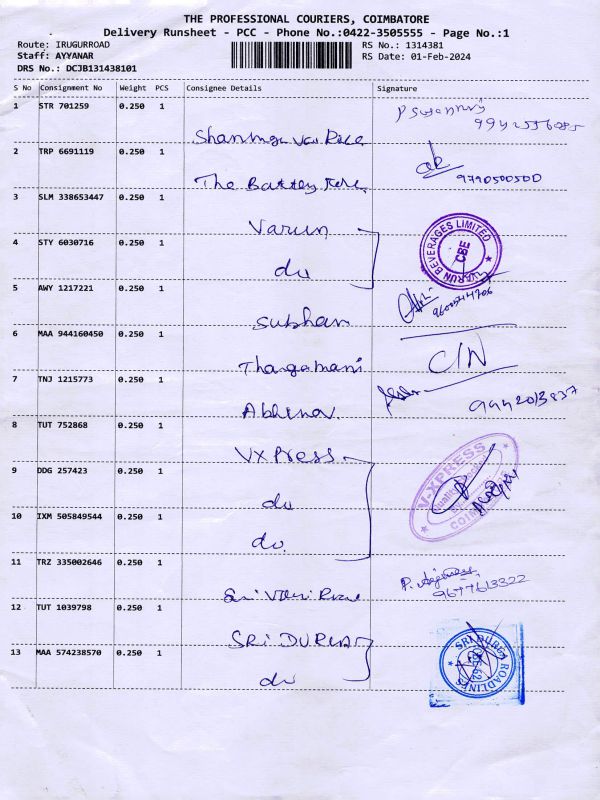 THE PROFESSIONAL COURIERS, COIMBATORE
Delivery Runsheet - PCC - Phone No.:0422-3505555 - Page No.:1
Route: IRUGURROAD
RS No.: 1314381
Staff: AYYANAR
RS Date: 01-Feb-2024
DRS No.: DCJB131438101
S No Consignment No Weight PCS Consignee Details Signature
1 STR 701259 0.250 1
2 TRP 6691119 0.250 1 The Battery 9790500500
3 SLM 338653447 0.250 1 Varun
VARUN BEVERAGES LIMITED
CBE
4 STY 6030716 0.250 1 do
5 AWY 1217221 0.250 1 Subham
6 MAA 944160450 0.250 1 Thangamani C/N
7 TNJ 1215773 0.250 1 Abhinav 9442013837
8 TUT 752868 0.250 1 VX Press
V-XPRESS
9 DDG 257423 0.250 1 do
10 IXM 505849544 0.250 1 do
11 TRZ 335002646 0.250 1 Sri Vari 9677613322
12 TUT 1039798 0.250 1 SRI DURGA
SRI DURGA ROADLINES
13 MAA 574238570 0.250 1 do